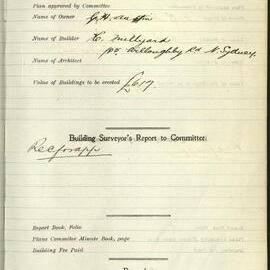 Plan approved by Committee
Name of Owner G. H. Martin
Name of Builder C. Millyard
Willoughby Rd N. Sydney.
Name of Architect
Value of Buildings to be erected £617
Building Surveyor's Report to Committee
Rec for app
Report Book, Folio
Plans Committee Minute Book, page
Building Fee Paid